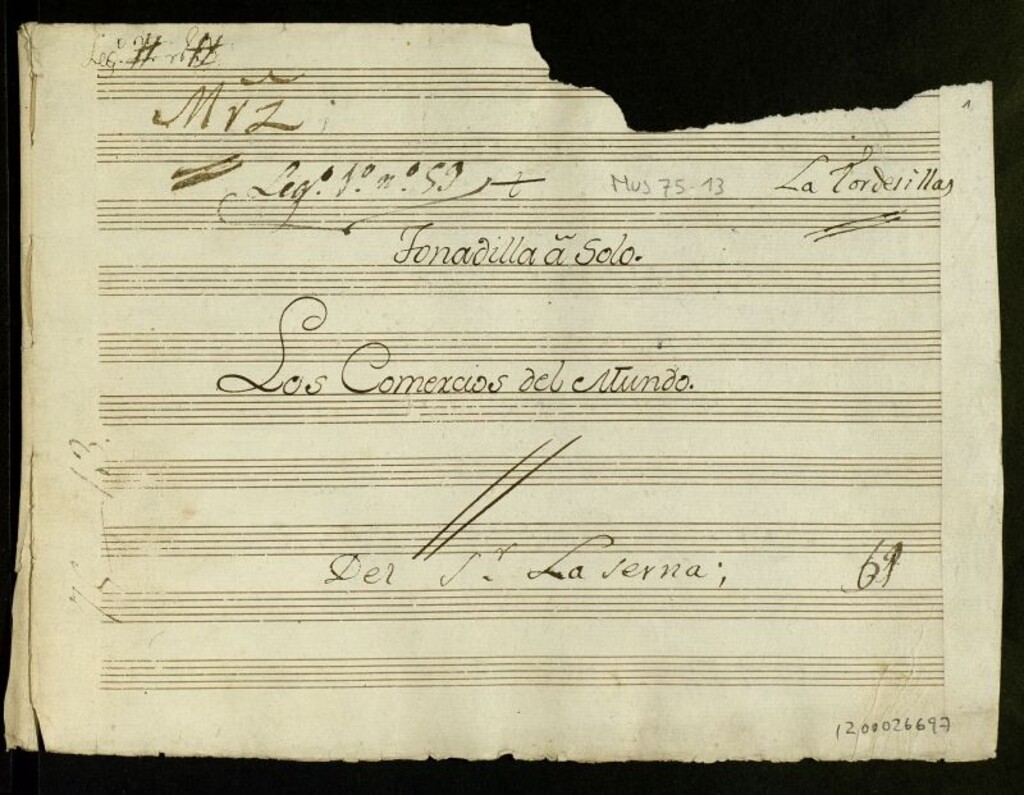 Leg.º
Mrz
1
Leg.º 1.º n.º 53
Mus 75-13
La Tordesillas
Tonadilla ã Solo.
Los Comercios del Mundo.
Del S.r Laserna;
61
1200026697